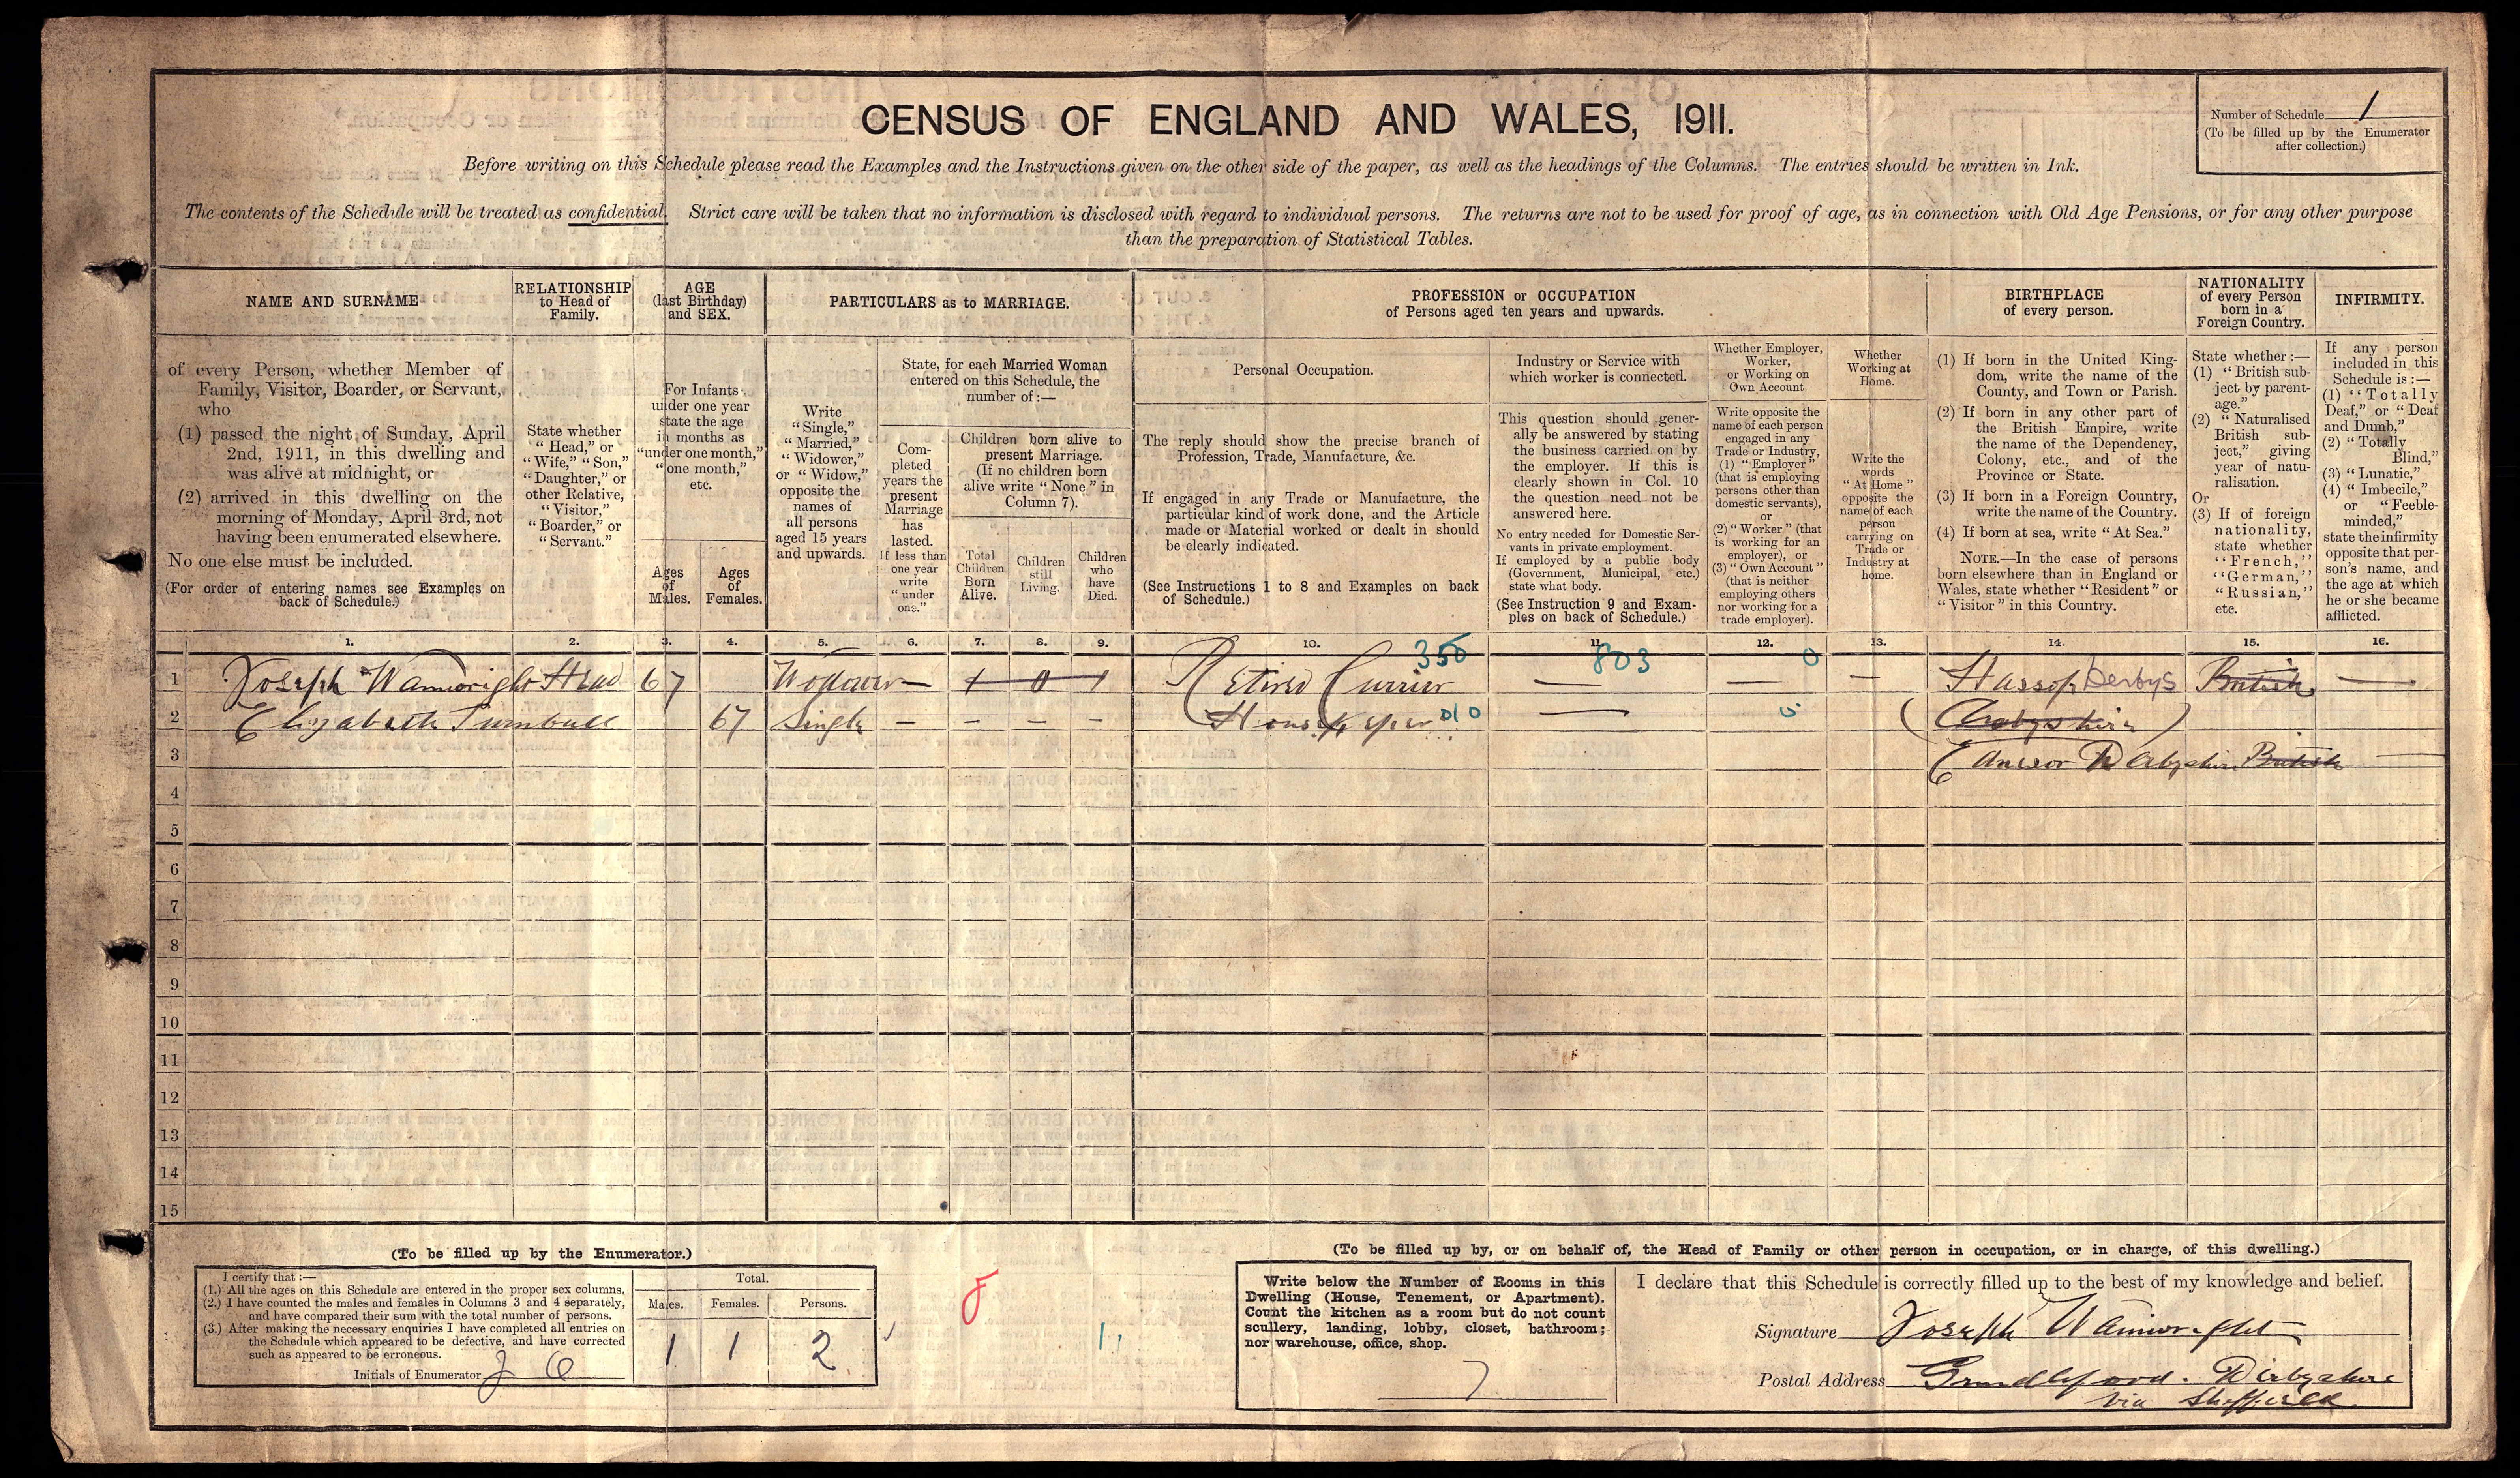 CENSUS OF ENGLAND AND WALES, 1911.
Number of Schedule 1
(To be filled up by the Enumerator
after collection.)
Before writing on this Schedule please read the Examples and the Instructions given on the other side of the paper, as well as the headings of the Columns. The entries should be written in Ink.
The contents of the Schedule will be treated as confidential. Strict care will be taken that no information is disclosed with regard to individual persons. The returns are not to be used for proof of age, as in connection with Old Age Pensions, or for any other purpose
than the preparation of Statistical Tables.
NAME AND SURNAME
of every Person, whether Member of
Family, Visitor, Boarder, or Servant,
who
(1) passed the night of Sunday, April
2nd, 1911, in this dwelling and
was alive at midnight, or
(2) arrived in this dwelling on the
morning of Monday, April 3rd, not
having been enumerated elsewhere.
No one else must be included.
(For order of entering names see Examples on
back of Schedule.)
RELATIONSHIP
to Head of
Family.
State whether
"Head," or
"Wife," "Son,"
"Daughter," or
other Relative,
"Visitor,"
"Boarder," or
"Servant."
AGE
(last Birthday)
and SEX.
For Infants
under one year
state the age
in months as
"under one month,"
"one month,"
etc.
Ages
of
Males.
Ages
of
Females.
PARTICULARS as to MARRIAGE.
Write
"Single,"
"Married,"
"Widower,"
or "Widow,"
opposite the
names of
all persons
aged 15 years
and upwards.
State, for each Married Woman
entered on this Schedule, the
number of:—
Com-
pleted
years the
present
Marriage
has
lasted.
If less than
one year
write
"under
one."
Children born alive to
present Marriage.
(If no children born
alive write "None" in
Column 7).
Total
Children
Born
Alive.
Children
still
Living.
Children
who
have
Died.
PROFESSION or OCCUPATION
of Persons aged ten years and upwards.
Personal Occupation.
The reply should show the precise branch of
Profession, Trade, Manufacture, &c.
If engaged in any Trade or Manufacture, the
particular kind of work done, and the Article
made or Material worked or dealt in should
be clearly indicated.
(See Instructions 1 to 8 and Examples on back
of Schedule.)
Industry or Service with
which worker is connected.
This question should gener-
ally be answered by stating
the business carried on by
the employer. If this is
clearly shown in Col. 10
the question need not be
answered here.
No entry needed for Domestic Ser-
vants in private employment.
If employed by a public body
(Government, Municipal, etc.)
state what body.
(See Instruction 9 and Exam-
ples on back of Schedule.)
Whether Employer,
Worker,
or Working on
Own Account
Write opposite the
name of each person
engaged in any
Trade or Industry,
(1) "Employer"
(that is employing
persons other than
domestic servants),
or
(2) "Worker" (that
is working for an
employer), or
(3) "Own Account"
(that is neither
employing others
nor working for a
trade employer).
Whether
Working at
Home.
Write the
words
"At Home"
opposite the
name of each
person
carrying on
Trade or
Industry at
home.
BIRTHPLACE
of every person.
(1) If born in the United King-
dom, write the name of the
County, and Town or Parish.
(2) If born in any other part of
the British Empire, write
the name of the Dependency,
Colony, etc., and of the
Province or State.
(3) If born in a Foreign Country,
write the name of the Country.
(4) If born at sea, write "At Sea."
NOTE.—In the case of persons
born elsewhere than in England or
Wales, state whether "Resident" or
"Visitor" in this Country.
NATIONALITY
of every Person
born in a
Foreign Country.
State whether:—
(1) "British sub-
ject by parent-
age."
(2) "Naturalised
British sub-
ject," giving
year of natu-
ralisation.
Or
(3) If of foreign
nationality,
state whether
"French,"
"German,"
"Russian,"
etc.
INFIRMITY.
If any person
included in this
Schedule is:—
(1) "Totally
Deaf," or "Deaf
and Dumb,"
(2) "Totally
Blind,"
(3) "Lunatic,"
(4) "Imbecile,"
or "Feeble-
minded,"
state the infirmity
opposite that per-
son's name, and
the age at which
he or she became
afflicted.
1. 2. 3. 4. 5. 6. 7. 8. 9. 10. 11. 12. 13. 14. 15. 16.
1 Joseph Wainwright Head 67 Widower — 1 0 1 Retired Currier 350 — 803 — 0 — Hassop Derbys British —
2 Elizabeth Turnbull 67 Single — — — — Housekeeper 010 — (Derbyshire)
3 Edensor Derbyshire British —
4
5
6
7
8
9
10
11
12
13
14
15
(To be filled up by the Enumerator.)
I certify that:—
(1.) All the ages on this Schedule are entered in the proper sex columns.
(2.) I have counted the males and females in Columns 3 and 4 separately,
and have compared their sum with the total number of persons.
(3.) After making the necessary enquiries I have completed all entries on
the Schedule which appeared to be defective, and have corrected
such as appeared to be erroneous.
Initials of Enumerator
Total.
Males. Females. Persons.
1 1 2
(To be filled up by, or on behalf of, the Head of Family or other person in occupation, or in charge, of this dwelling.)
Write below the Number of Rooms in this
Dwelling (House, Tenement, or Apartment).
Count the kitchen as a room but do not count
scullery, landing, lobby, closet, bathroom;
nor warehouse, office, shop.
7
I declare that this Schedule is correctly filled up to the best of my knowledge and belief.
Signature Joseph Wainwright
Postal Address Grindleford. Derbyshire
via Sheffield.